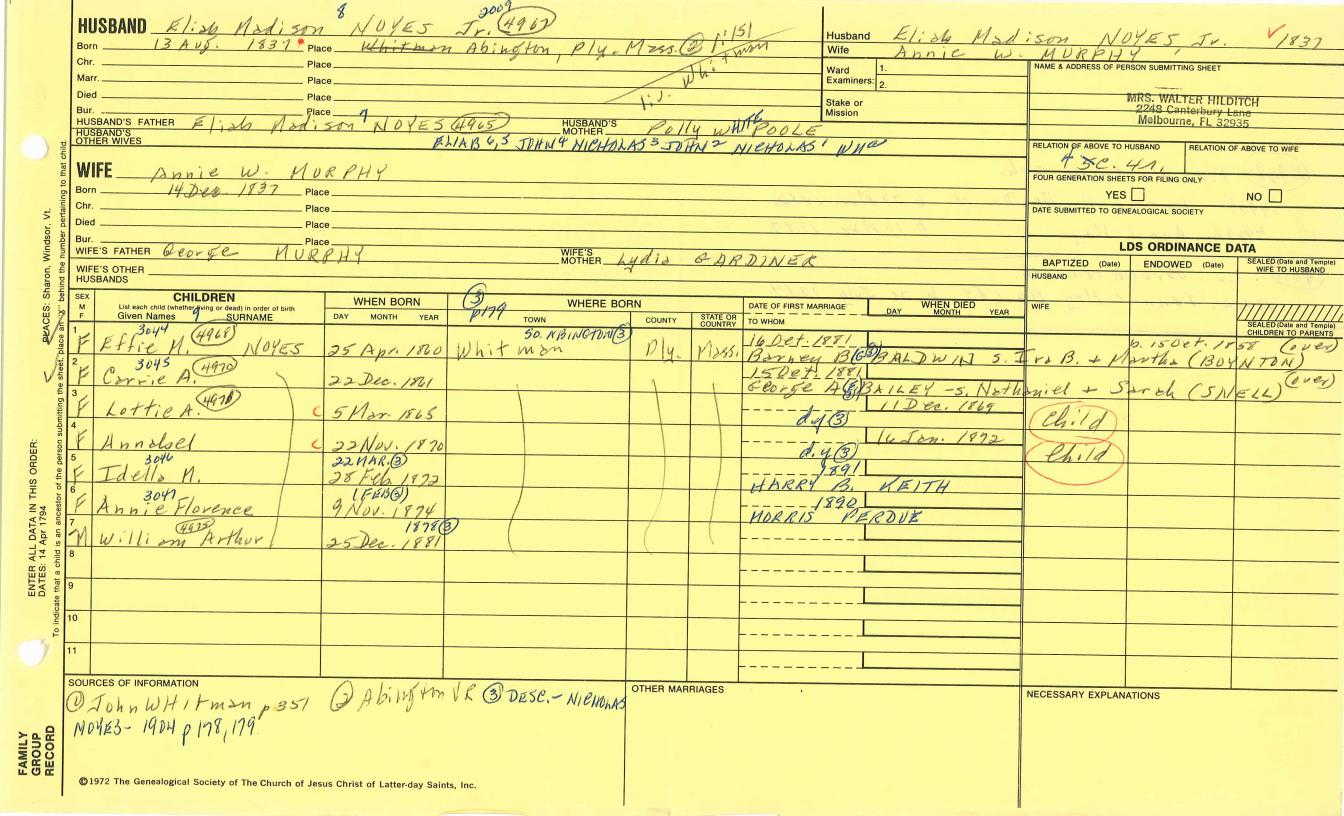 8 2009
HUSBAND Eliab Madison NOYES Jr. 4967
Born 13 Aug. 1837 Place Whitman Abington, Ply. Mass. ② 1:151
liv. Whitman
Chr. Place
Marr. Place
Died Place
Bur. Place
HUSBAND'S FATHER Eliab Madison 7 NOYES 4965 HUSBAND'S MOTHER Polly WHITE POOLE
HUSBAND'S OTHER WIVES ELIAB 6,5 JOHN 4 NICHOLAS 3 JOHN 2 NICHOLAS 1
Husband Eliab Madison NOYES, Jr. ✓ 1837
Wife Annie W. MURPHY
Ward Examiners: 1.
2.
Stake or Mission
NAME & ADDRESS OF PERSON SUBMITTING SHEET
MRS. WALTER HILDITCH
2248 Canterbury Lane
Melbourne, FL 32935
RELATION OF ABOVE TO HUSBAND RELATION OF ABOVE TO WIFE
FOUR GENERATION SHEETS FOR FILING ONLY
YES NO
DATE SUBMITTED TO GENEALOGICAL SOCIETY
WIFE Annie W. MURPHY
Born 14 Dec. 1837 Place
Chr. Place
Died Place
Bur. Place
WIFE'S FATHER George MURPHY WIFE'S MOTHER Lydia GARDINER
WIFE'S OTHER HUSBANDS
LDS ORDINANCE DATA
BAPTIZED (Date) ENDOWED (Date) SEALED (Date and Temple) WIFE TO HUSBAND
HUSBAND
WIFE
SEALED (Date and Temple) CHILDREN TO PARENTS
SEX M F CHILDREN List each child (whether living or dead) in order of birth Given Names 9 SURNAME
WHEN BORN DAY MONTH YEAR
③ p179 WHERE BORN TOWN COUNTY STATE OR COUNTRY
DATE OF FIRST MARRIAGE TO WHOM
WHEN DIED DAY MONTH YEAR
1 F 3044 4968 Effie M. NOYES 25 Apr. 1860 SO. ABINGTON ③ Whitman Ply. Mass. 16 Oct. 1881 b. 15 Oct. 1858 (over)
Barney B. ③ BALDWIN s. Ira B. + Martha (BOYNTON)
2 F 3045 4970 Carrie A. 22 Dec. 1861 15 Oct. 1881 (over)
George A. ③ BAILEY - s. Nathaniel + Sarah (SNELL)
3 F 4971 Lottie A. 5 Mar. 1865 d.y. ③ 11 Dec. 1869 Child
4 F Annabel 22 Nov. 1870 d.y. ③ 16 Jan. 1872 Child
5 F 3046 Idella M. 22 MAR. ③ 28 Feb. 1872 1891
HARRY B. KEITH
6 F 3047 Annie Florence 1 FEB ③ 9 Nov. 1874 1890
MORRIS PERDUE
7 M 4975 William Arthur 1878 ③ 25 Dec. 1881
8
9
10
11
SOURCES OF INFORMATION
① John WHitman p 351 ② Abington VR ③ DESC. - NICHOLAS
NOYES - 1904 p 178, 179
OTHER MARRIAGES
NECESSARY EXPLANATIONS
©1972 The Genealogical Society of The Church of Jesus Christ of Latter-day Saints, Inc.
FAMILY GROUP RECORD
ENTER ALL DATA IN THIS ORDER:
DATES: 14 Apr 1794
PLACES: Sharon, Windsor, Vt.
To indicate that a child is an ancestor of the person submitting the sheet, place an "X" behind the number pertaining to that child.